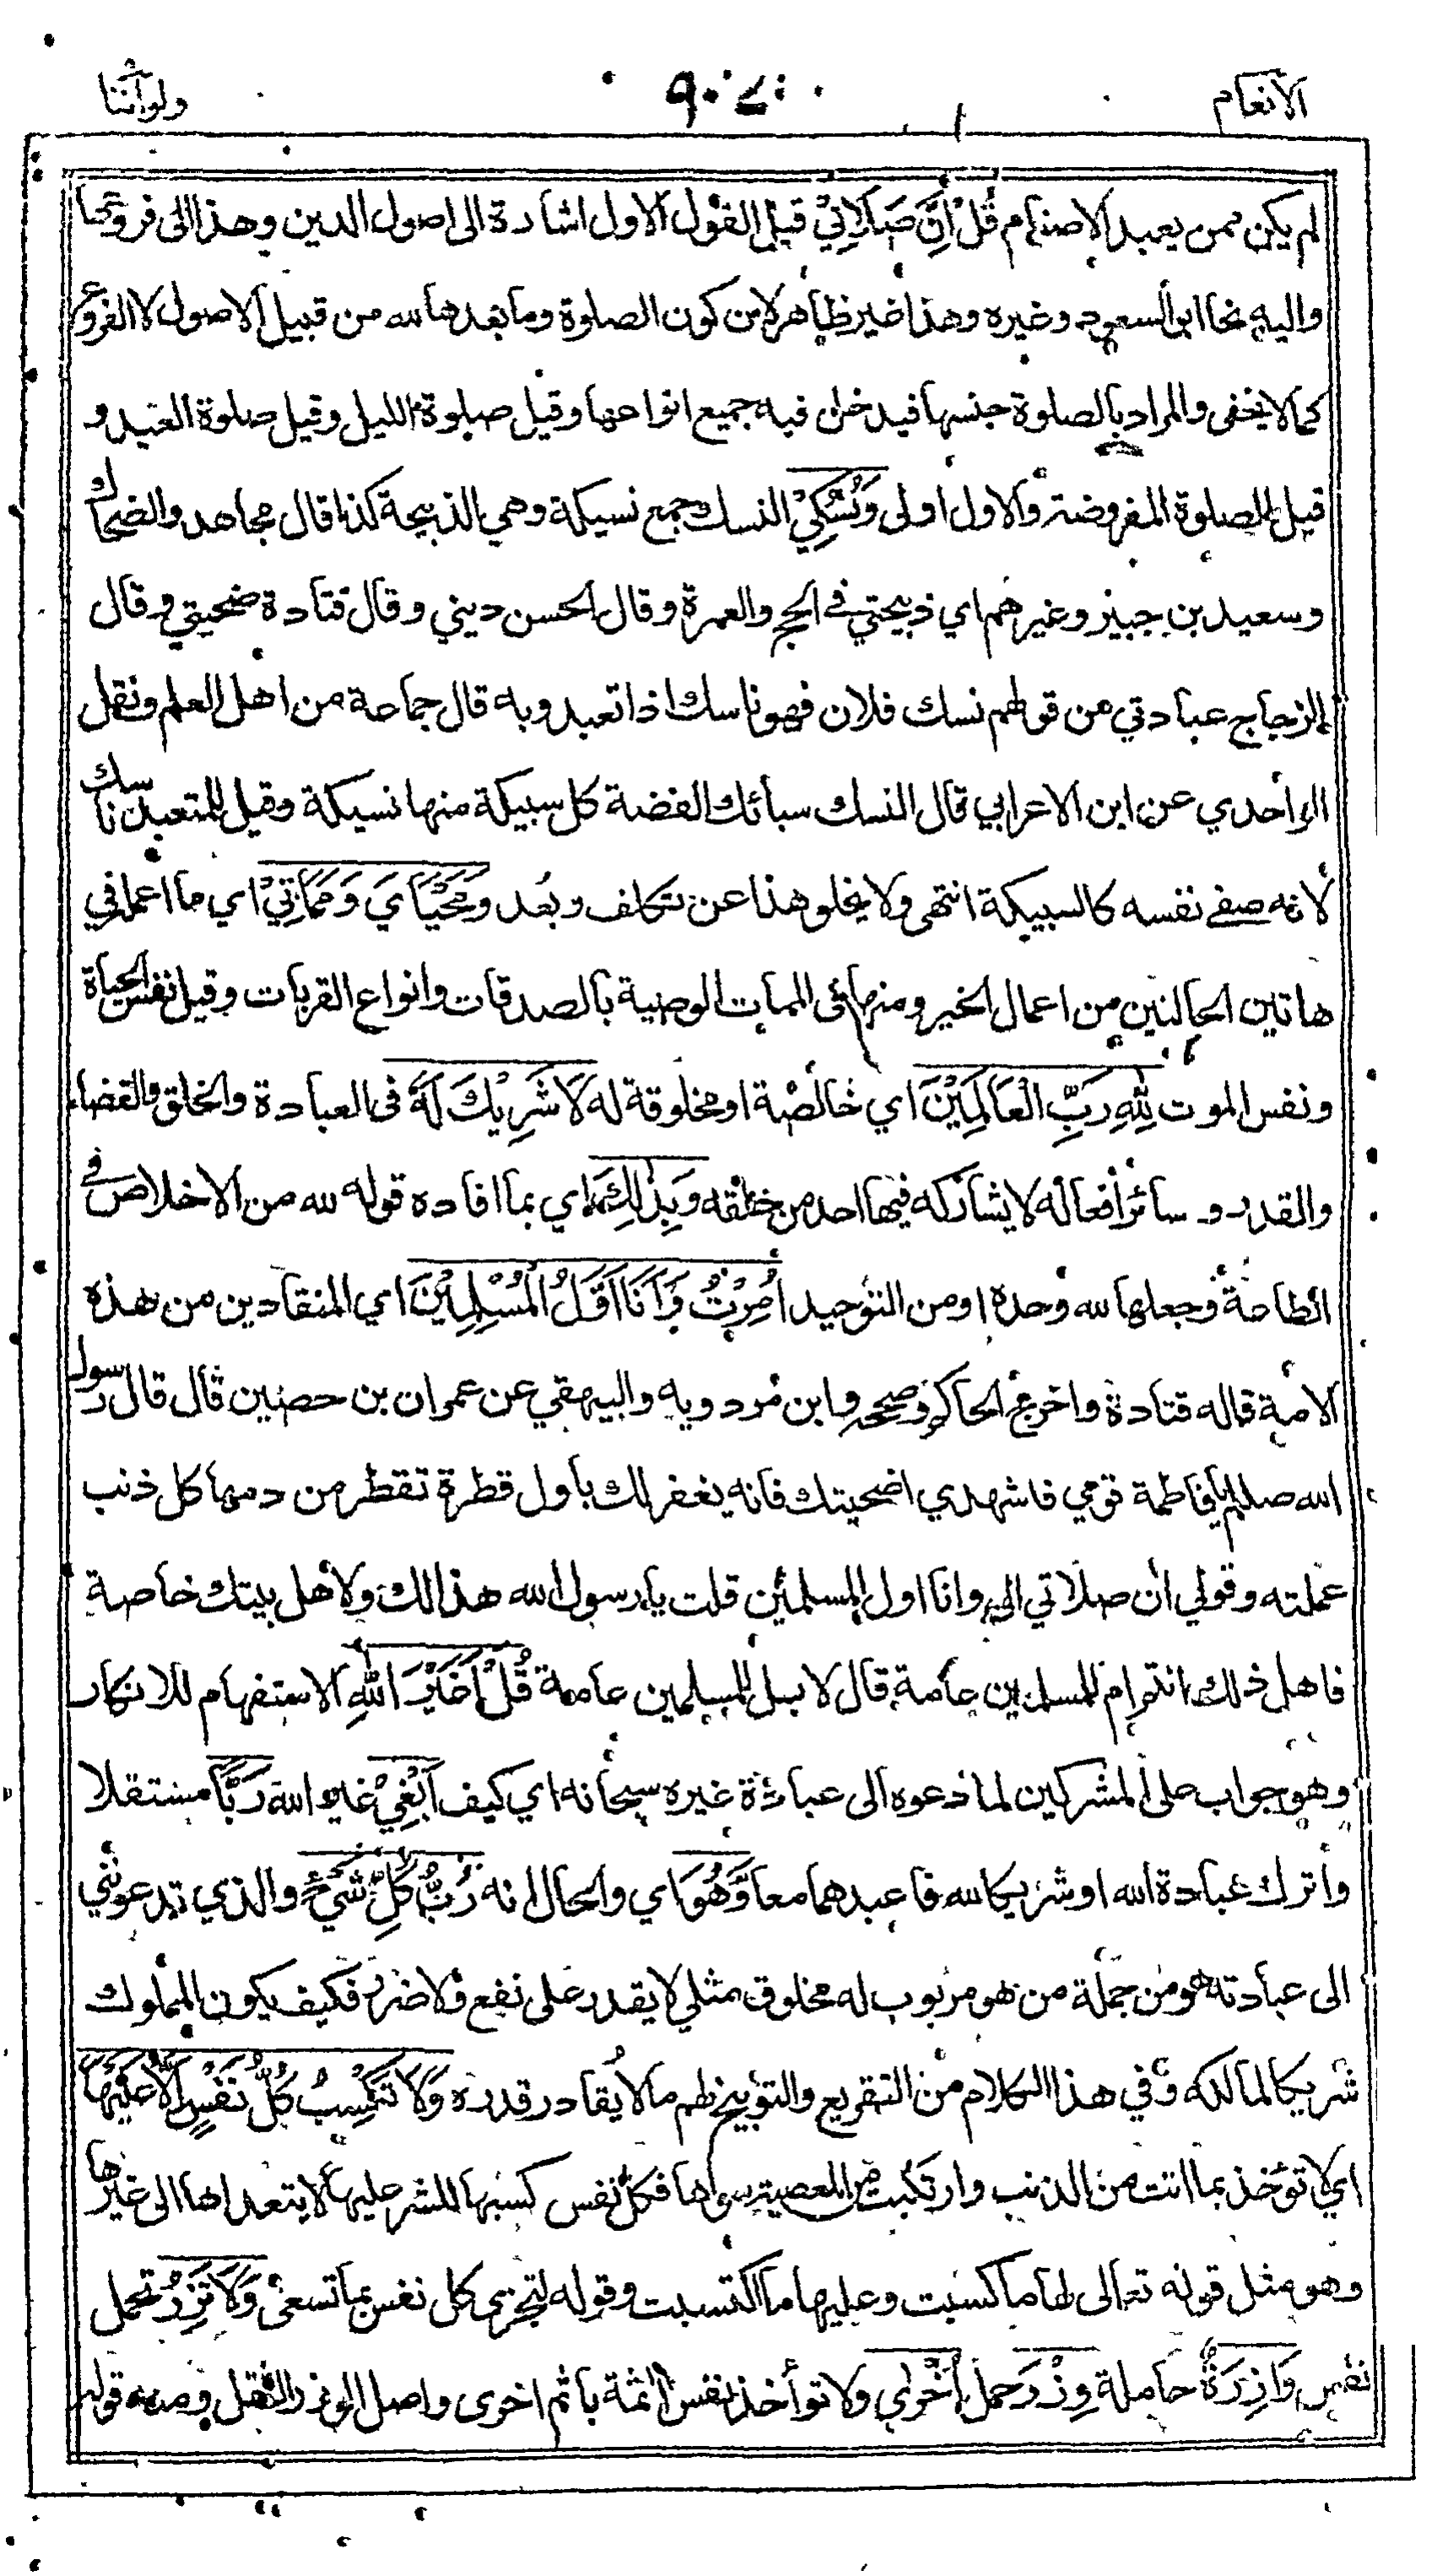 الانعام
ولو اننا
لم يكن ممن يعبد الاصنام قُلْ اِنَّ صَلَاتِيْ قيل القول الاول اشارة الى اصول الدين وهذا الى فروعها
واليه نحا ابو السعود وغيره وهذا غير ظاهر لان كون الصلوة وما بعدها لله من قبيل الاصول لا الفروع
كما لا يخفى والمراد بالصلوة جنسها فيدخل فيه جميع انواعها وقيل صلوة الليل وقيل صلوة العيد و
قيل الصلوة المفروضة والاول اولى وَنُسُكِيْ النسك جمع نسيكة وهي الذبيحة كذا قال مجاهد والضحاك
وسعيد بن جبير وغيرهم اي ذبيحتي في الحج والعمرة وقال الحسن ديني وقال قتادة ضحيتي وقال
الزجاج عبادتي من قولهم نسك فلان فهو ناسك اذا تعبد وبه قال جماعة من اهل العلم ونقل
الواحدي عن ابن الاعرابي قال النسك سبائك الفضة كل سبيكة منها نسيكة وقيل للمتعبد ناسك
لانه صفى نفسه كالسبيكة انتهى ولا يخلو هذا عن تكلف وبُعد وَمَحْيَايَ وَمَمَاتِيْ اي ما اعمله في
هاتين الحالتين من اعمال الخير ومنها في الممات الوصية بالصدقات وانواع القربات وقيل نفس الحياة
ونفس الموت لِلّٰهِ رَبِّ الْعَالَمِيْنَ اي خالصة او مخلوقة له لَا شَرِيْكَ لَهُ في العبادة والخلق والقضاء
والقدر وسائر أفعاله لا يشاركه فيها احد من خلقه وَبِذٰلِكَ اي بما افاده قوله لله من الاخلاص في
الطاعة وجعلها لله وحده او من التوحيد اُمِرْتُ وَاَنَا اَوَّلُ الْمُسْلِمِيْنَ اي المنقادين من هذه
الامة قاله قتادة واخرج الحاكم وصححه وابن مردويه والبيهقي عن عمران بن حصين قال قال رسول
الله صللم يا فاطمة قومي فاشهدي اضحيتك فانه يغفر لك بأول قطرة تقطر من دمها كل ذنب
عملته وقولي ان صلاتي الى وانا اول المسلمين قلت يا رسول الله هذا لك ولاهل بيتك خاصة
فاهل ذلك انتم ام للمسلمين عامة قال لا بل للمسلمين عامة قُلْ اَغَيْرَ اللّٰهِ الاستفهام للانكار
وهو جواب على المشركين لما دعوه الى عبادة غيره سبحانه اي كيف اَبْغِيْ غير الله رَبًّا مستقلا
وأترك عبادة الله او شريكا لله فاعبدهما معا وَّهُوَ اي والحال انه رَبُّ كُلِّ شَيْءٍ والذي تدعونني
الى عبادته هو من جملة من هو مربوب له مخلوق مثلي لا يقدر على نفع ولا ضر فكيف يكون المملوك
شريكا لمالكه وفي هذا الكلام من التقريع والتوبيخ لهم ما لا يقادر قدره وَلَا تَكْسِبُ كُلُّ نَفْسٍ اِلَّا عَلَيْهَا
اي لا تؤخذ بما اتت من الذنب وارتكبت من المعصية سواها فكل نفس كسبها للشر عليها لا يتعداها الى غيرها
وهو مثل قوله تعالى لها ما كسبت وعليها ما اكتسبت وقوله لتجزى كل نفس بما تسعى وَلَا تَزِرُ تحمل
نفس وَازِرَةٌ حاملة وِزْرَ حمل أُخْرٰى ولا تؤاخذ نفس اٰثمة باثم اخرى واصل الوزر الثقل ومنه قوله